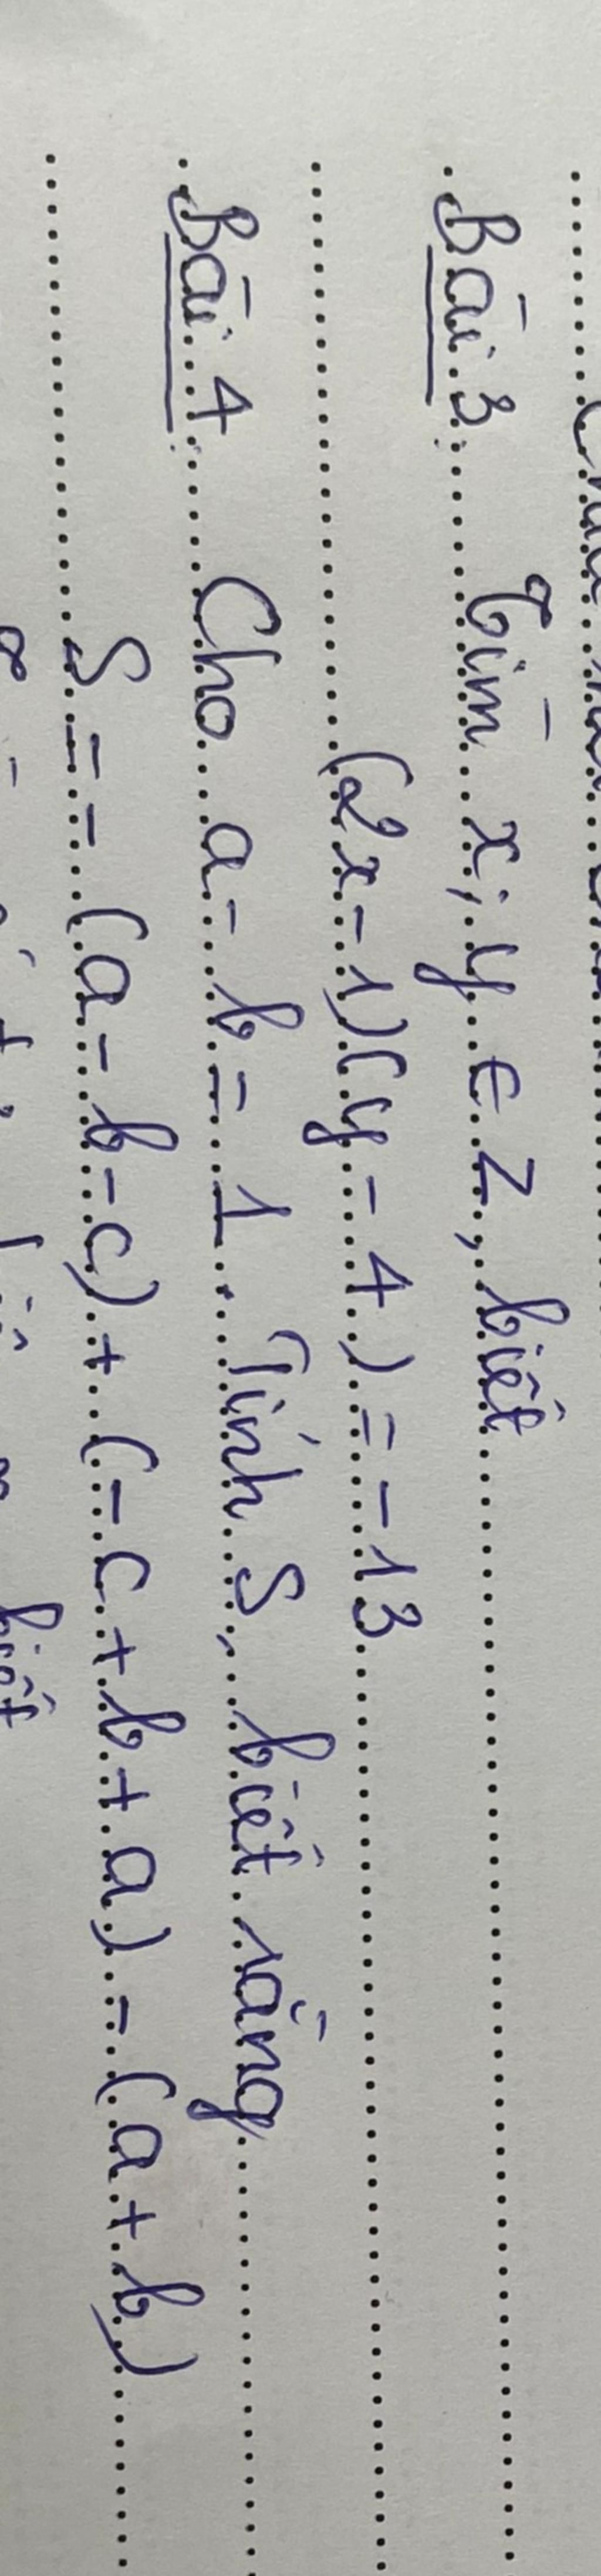 Bài 3: Tìm x; y ∈ Z, biết
(2x - 1)(y - 4) = -13
Bài 4: Cho a - b = 1. Tính S, biết rằng
S = - (a - b - c) + (- c + b + a) - (a + b)
biết